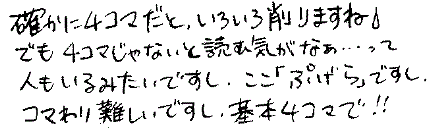 確かに4コマだと、いろいろ削りますね♪
でも4コマじゃないと読む気がなぁ…って
人もいるみたいですし、ここ「ぷげら」ですし、
コマわり難しいですし、基本4コマで!!